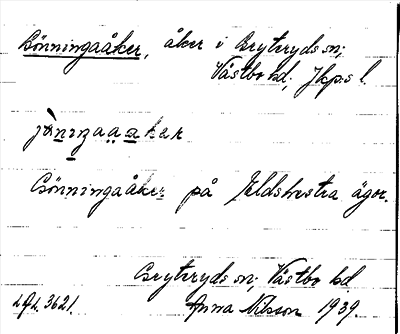 Gönningaåker, åker i Gryteryds sn;
Västbo hd; Jkps l.
Gönningaåker på Eldshestra ägor.
Gryteryds sn; Västbo hd
Anna Nilsson 1939.